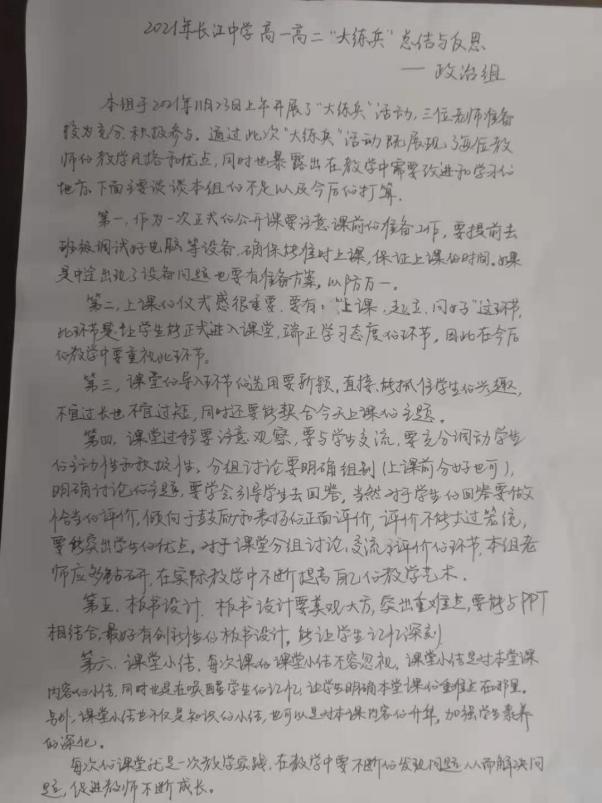 2021年长江中学高一高二“大练兵”总结与反思
——政治组
本组于2021年11月23日上午开展了“大练兵”活动,三位老师准备
较为充分,积极参与。通过此次“大练兵”活动既展现了每位教
师的教学风格和优点,同时也暴露出在教学中需要改进和学习的
地方。下面主要谈谈本组的不足以及今后的打算.
第一,作为一次正式的公开课要注意课前的准备工作,要提前去
班级调试好电脑等设备,确保能准时上课,保证上课的时间。如果
是中途出现了设备问题也要有准备方案,以防万一。
第二,上课的仪式感很重要,要有:“上课、起立、问好”这环节,
此环节是让学生能正式进入课堂,端正学习态度的环节。因此在今后
的教学中要重视此环节。
第三,课堂的导入环节的选用要新颖,直接,能抓住学生的兴趣,
不宜过长也不宜过短,同时还要能契合今天上课的主题。
第四,课堂过程要注意观察,要与学生交流,要充分调动学生
的主动性和积极性。分组讨论要明确组别(上课前分好也可),
明确讨论的主题,要学会引导学生去回答,当然对于学生的回答要做
恰当的评价,倾向于鼓励和表扬的正面评价,评价不能太过笼统,
要能突出学生的优点。对于课堂分组讨论、交流与评价的环节,本组老
师应多钻研,在实际教学中不断提高自己的教学艺术.
第五,板书设计,板书设计要美观大方,突出重难点,要能与PPT
相结合,最好有创新性的板书设计,能让学生记忆深刻
第六,课堂小结,每次课的课堂小结不容忽视,课堂小结是对本堂课
内容的小结,同时也是在唤醒学生的记忆,让学生明确本堂课的重难点在哪里。
另外,课堂小结也不仅是知识的小结,也可以是对本课内容的升华,加强学生素养
的深化。
每次的课堂就是一次教学实践,在教学中要不断的发现问题,从而解决问
题,促进教师不断成长。